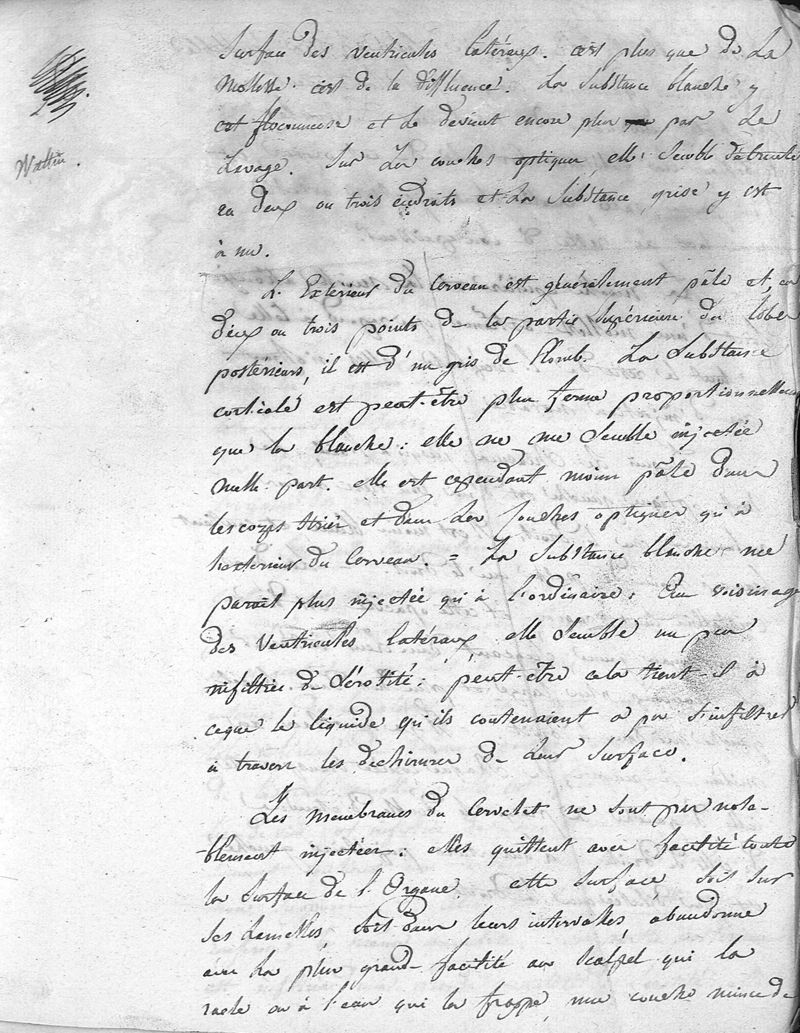 Surface des ventricules latéraux. c'est plus que de La
Mollesse. c'est de la diffluence. La Substance blanche y
est floconneuse et le devient encore plus par Le
Lavage. Sur Les couches optiques, elle Semble détruite
en deux ou trois endroits et La Substance grise y est
à nu.
L'Extérieur du Cerveau est généralement pâle et, en
deux ou trois points de la partie Supérieure des lobes
postérieurs, il est d'un gris de Plomb. La Substance
corticale est peut-être plus ferme proportionnellement
que la blanche : elle ne me Semble injectée
nulle part. elle est cependant moins pâle dans
les corps striés et dans Les couches optiques qu'à
l'extérieur du Cerveau. = La Substance blanche me
paroit plus injectée qu'à l'ordinaire ; Au voisinage
des Ventricules Latéraux elle Semble un peu
infiltrée de Sérosité : peut-être cela tient-il à
ceque le liquide qu'ils contenaient a pu s'infiltrer
à travers les déchirures de Leur Surface.
Les membranes du Cervelet ne sont pas nota-
blement injectées : elles quittent avec facilité toute
la Surface de l'Organe. cette Surface Soit Sur
Ses Lamelles, Soit dans leurs intervalles, abandonne
avec La plus grande facilité au Scalpel qui la
racle ou à l'eau qui la frappe, une couche mince de